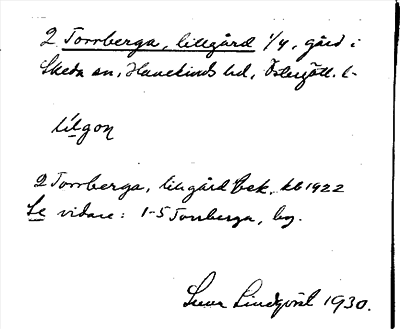 2 Torrberga, lillgård 1/4, gård i
Skeda sn, Hanekinds hd, Östergötl. l-
lílgon
2 Torrberga, lillgård bek. kb 1922
Se vidare: 1-5 Torrberga, by.
Sven Lindqvist 1930.